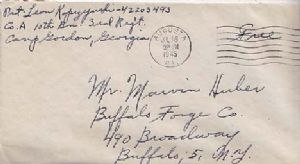 Pvt. Leon 42203493
Co. A 10th Bn 3rd Regt.
Camp Gordon, Georgia
AUGUSTA
JUL 18
1945
GA.
Free
Mr. Marvin Huber
Buffalo Forge Co.
490 Broadway
Buffalo, 5, N.Y.